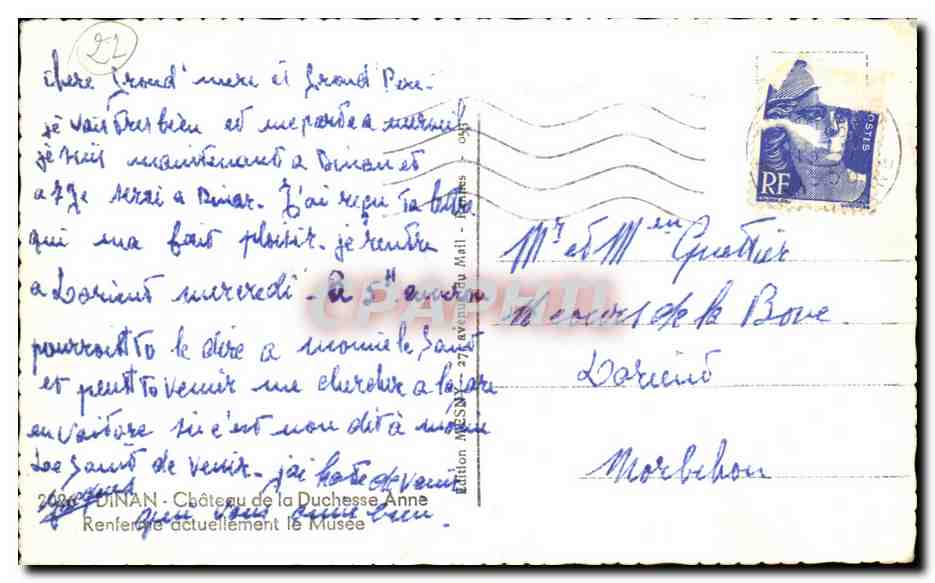 22
chere Grand' mere et Grand Pere.
je vais tres bien et me porte a merveil
je suis maintenant a Dinan et
a 7H je serai a Dinar. J'ai reçu ta lettre
qui ma fait plaisir. je rentre
a Lorient mercredi. a 5H environ
pourroistto le dire a momie le Sant
et peuttto venir me chercher a la gare
en voiture si c'est non dit à
de venir. j'ai hate de venir
Jacques
qui vous aime bien.
2026 - DINAN - Château de la Duchesse Anne
Renferme actuellement le Musée
Edition MESNY - 27, avenue du Mail - Rennes
CPAPHIL
POSTES
RF
Mr et Men Guettier
cours de la Bove
Lorient
Morbihan